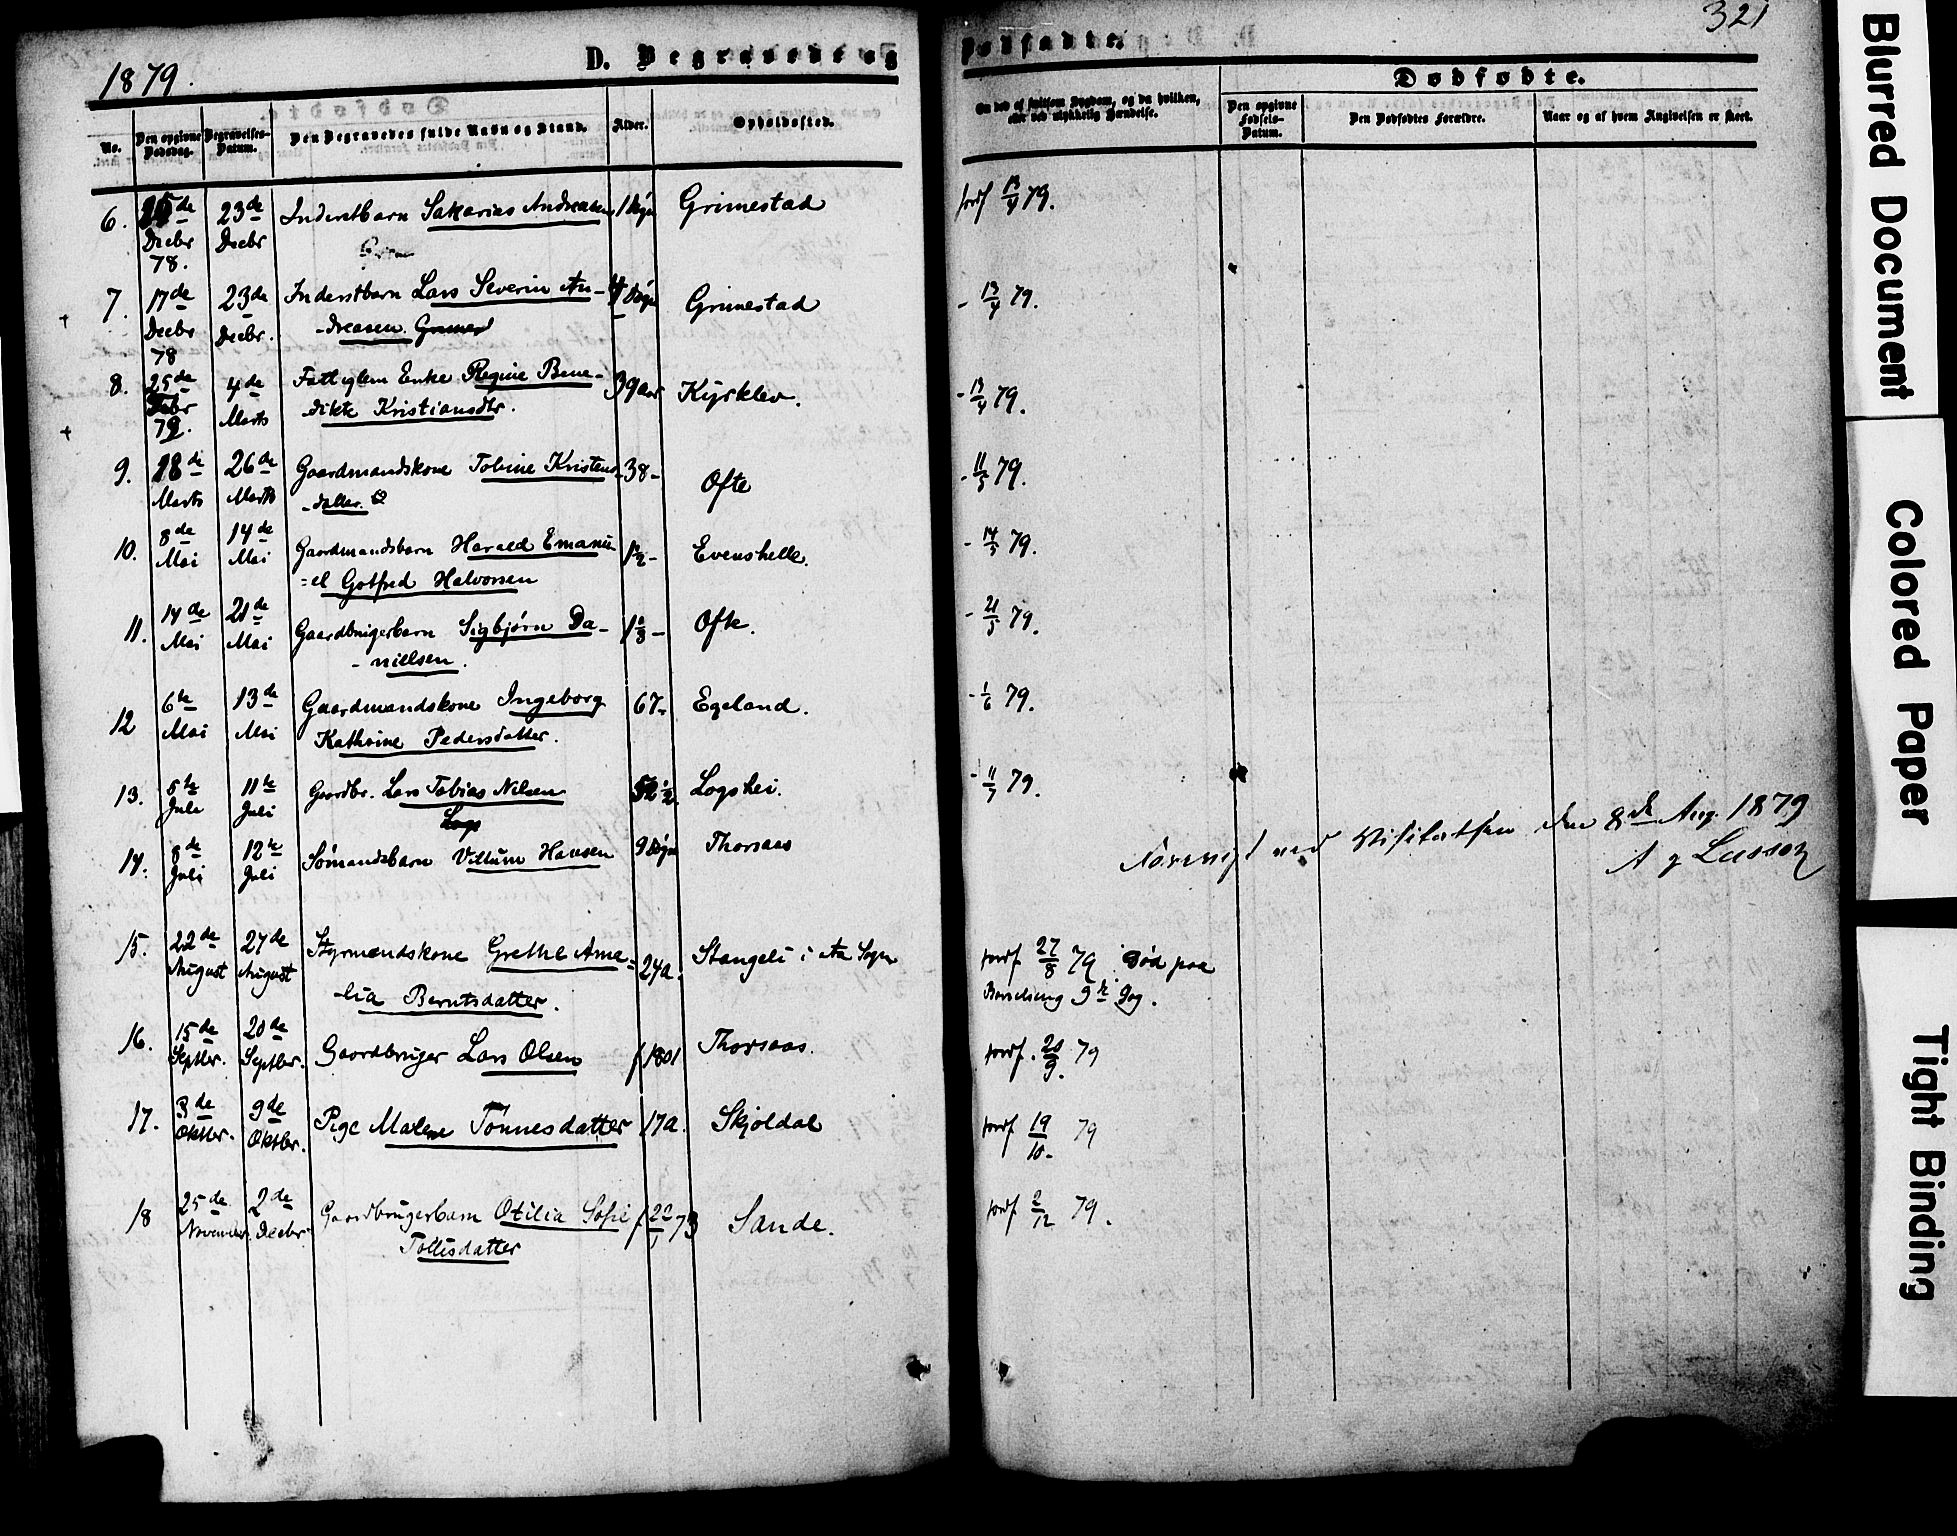 1879.
D. Begravede og
No.
Den opgivne Dødsdag.
Begravelses-Datum.
Den Begravedes fulde Navn og Stand.
Alder.
Opholdssted.
6. 15de 23de Inderstbarn Sakarias Andreasen 1 Døgn Grimestad
Decbr Decbr
78.
7. 17de 23de Inderstbarn Lars Severin An- 4 Døgn Grimestad
Decbr Decbr. -dreasen.
78
8. 25de 4de Fattiglem Enke Regine Bene- 39 aar Kyrklev.
Febr Marts -dikte Kristiansdtr.
79.
9. 18de 26de Gaardmandskone Tobine Kristens- 38- Ofte
Marts Marts -datter.
10. 8de 14de Gaardmandsbarn Harald Emanu- 1½- Evenshelle.
Mai Mai =el Gotfred Halvorsen
11. 14de 21de Gaardbrugerbarn Sigbjørn Da- 1⅓- Ofte.
Mai Mai -nielsen.
12 6te 13de Gaardmandskone Ingeborg 67- Egeland.
Mai Mai Kathrine Pedersdatter.
13. 5te 11te Gaardbr. Lars Tobias Nilsen 52½. Logshei.
Juli Juli Logs
14. 8de 12te Sømandsbarn Villum Hansen 9 Døgn Thorsaas
Juli Juli
15. 22de 27de Styrmandskone Grethe Ame- 24a. Stangeli i Aa Sogn
August August -lia Berntsdatter.
16. 15de 20de Gaardbruger Lars Olsen f 1801 Thorsaas.
Septbr. Septbr.
17. 3de 9de Pige Malene Tönnesdatter 17a. Skjoldal
Oktbr. Oktbr.
18 25de 2de Gaardbrugerbarn Otilia Sofie f 22/1 73 Sande.
November Decbr Tollisdatter
321
Dødfødte.
Om død af hvilken Sygdom, og da hvilken,
eller ved ulykkelig Hændelse.
Dødfødte.
Den opgivne Fødsels-Datum.
Den Dødfødtes Forældre.
Naar og af hvem Angivelsen er skeet.
jordf 13/4 79.
- 13/4 79.
- 13/4 79.
- 11/5 79.
- 14/5 79.
- 21/5 79.
- 1/6 79.
- 11/7 79.
ved Visitatsen den 8de Aug. 1879
Lasson
jordf. 27/8 79. Død paa
Barselseng 9de Dag.
jordf. 20/9. 79
jordf 19/10. 79
jordf 2/12 79.
Blurred Document
Colored Paper
Tight Binding